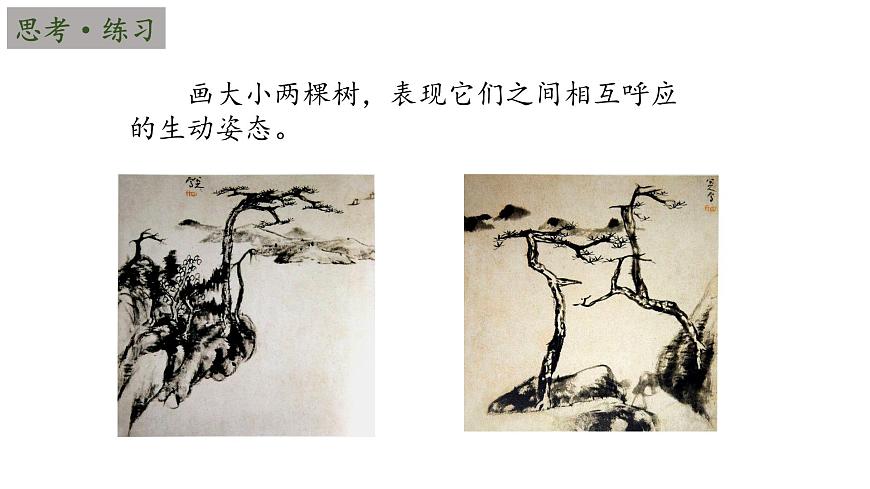 思考·练习
画大小两棵树，表现它们之间相互呼应
的生动姿态。